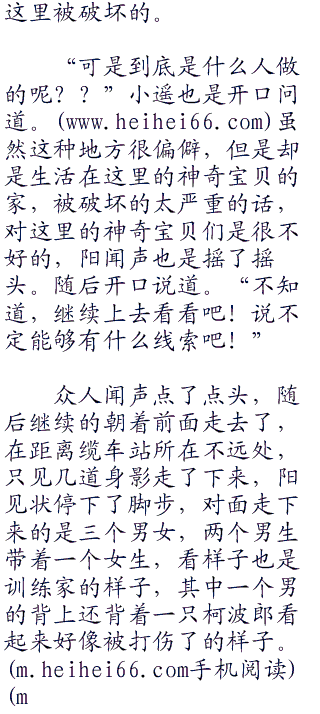 这里被破坏的。
“可是到底是什么人做
的呢？？”小遥也是开口问
道。(www.heihei66.com)虽
然这种地方很偏僻，但是却
是生活在这里的神奇宝贝的
家，被破坏的太严重的话，
对这里的神奇宝贝们是很不
好的，阳闻声也是摇了摇
头。随后开口说道。“不知
道，继续上去看看吧！说不
定能够有什么线索吧！”
众人闻声点了点头，随
后继续的朝着前面走去了，
在距离缆车站所在不远处，
只见几道身影走了下来，阳
见状停下了脚步，对面走下
来的是三个男女，两个男生
带着一个女生，看样子也是
训练家的样子，其中一个男
的背上还背着一只柯波郎看
起来好像被打伤了的样子。
(m.heihei66.com手机阅读)
(m